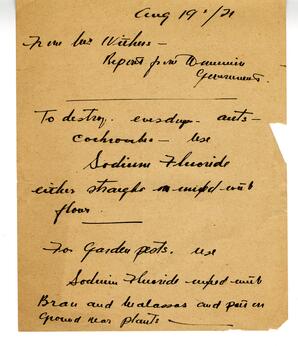 Aug 19th/21
From Mr Withers -
Report from Dominion
Government.
To destroy - ants -
cockroaches - use
Sodium Fluoride
either straight or mixed with
flour.
For Garden pests. use
Sodium Fluoride mixed with
Bran and Malassas and put on
Ground near plants -